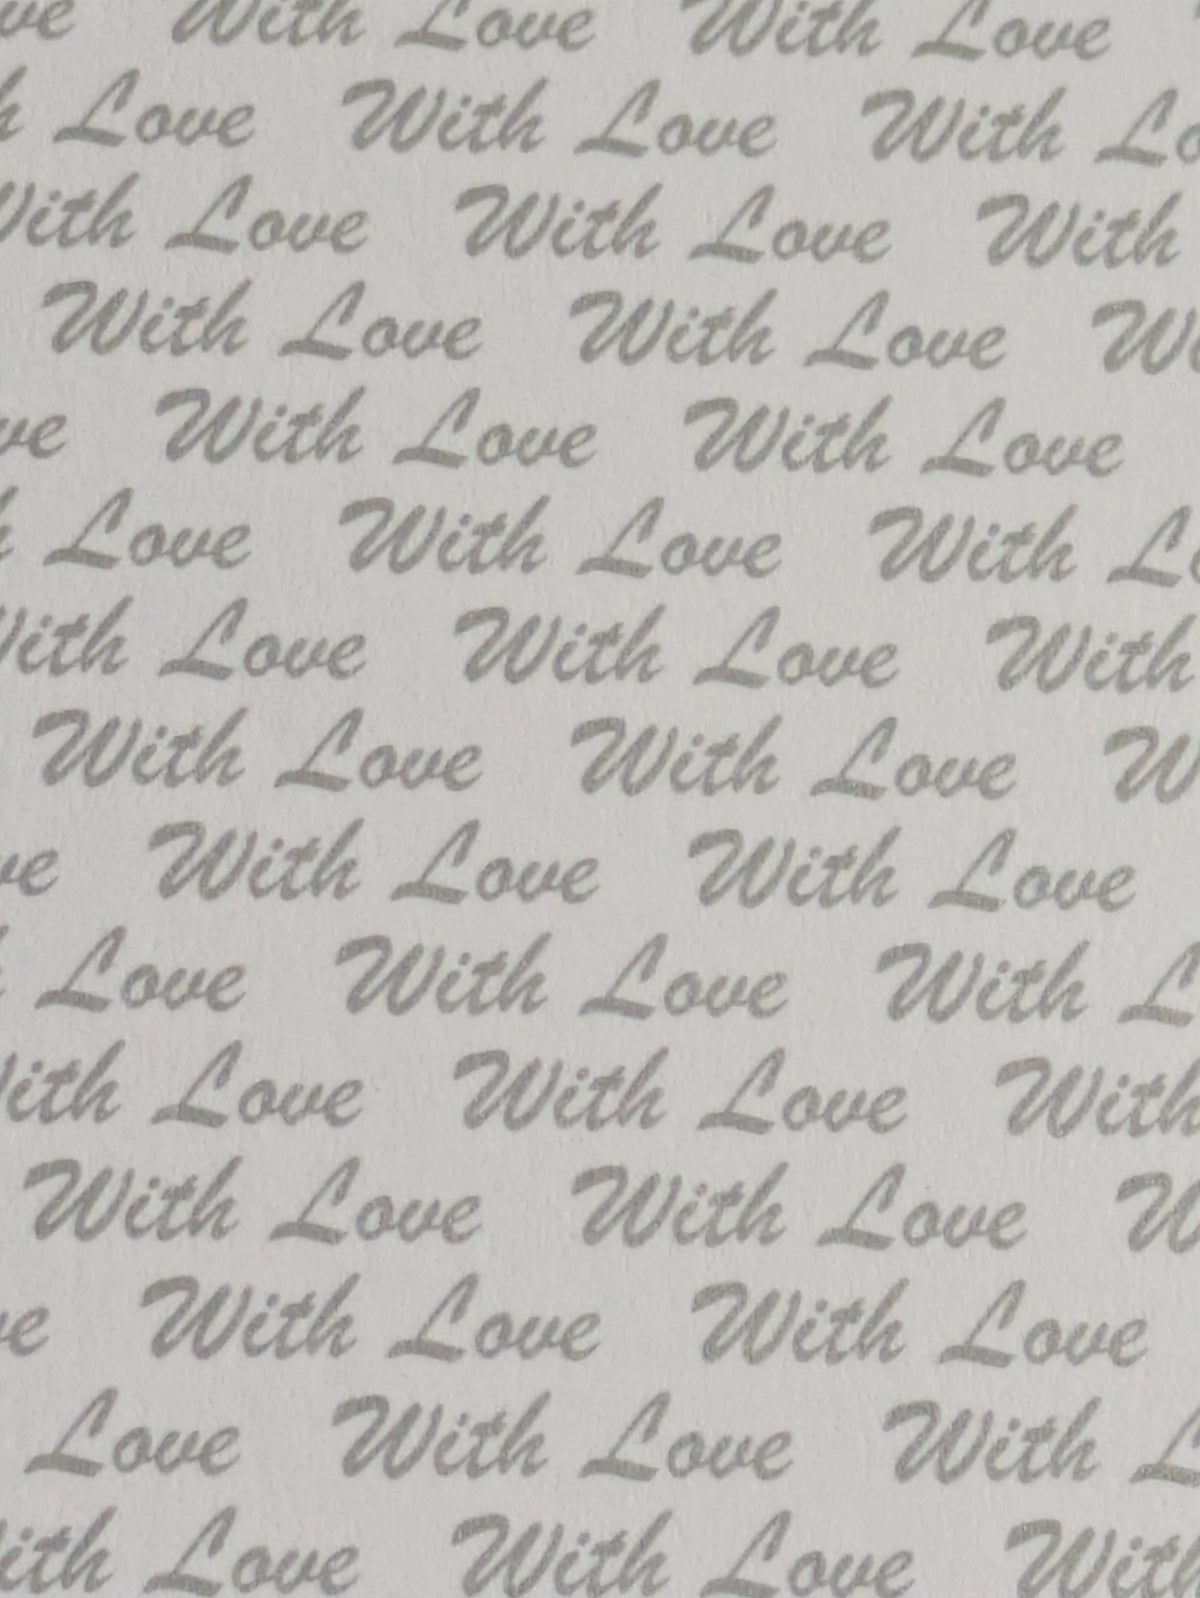 ve With Love With Love
h Love With Love With Lo
With Love With Love With
With Love With Love Wi
ve With Love With Love
h Love With Love With Lo
With Love With Love With
With Love With Love W
ve With Love With Love
Love With Love With L
ith Love With Love With
With Love With Love W
ve With Love With Love
Love With Love With L
ith Love With Love With